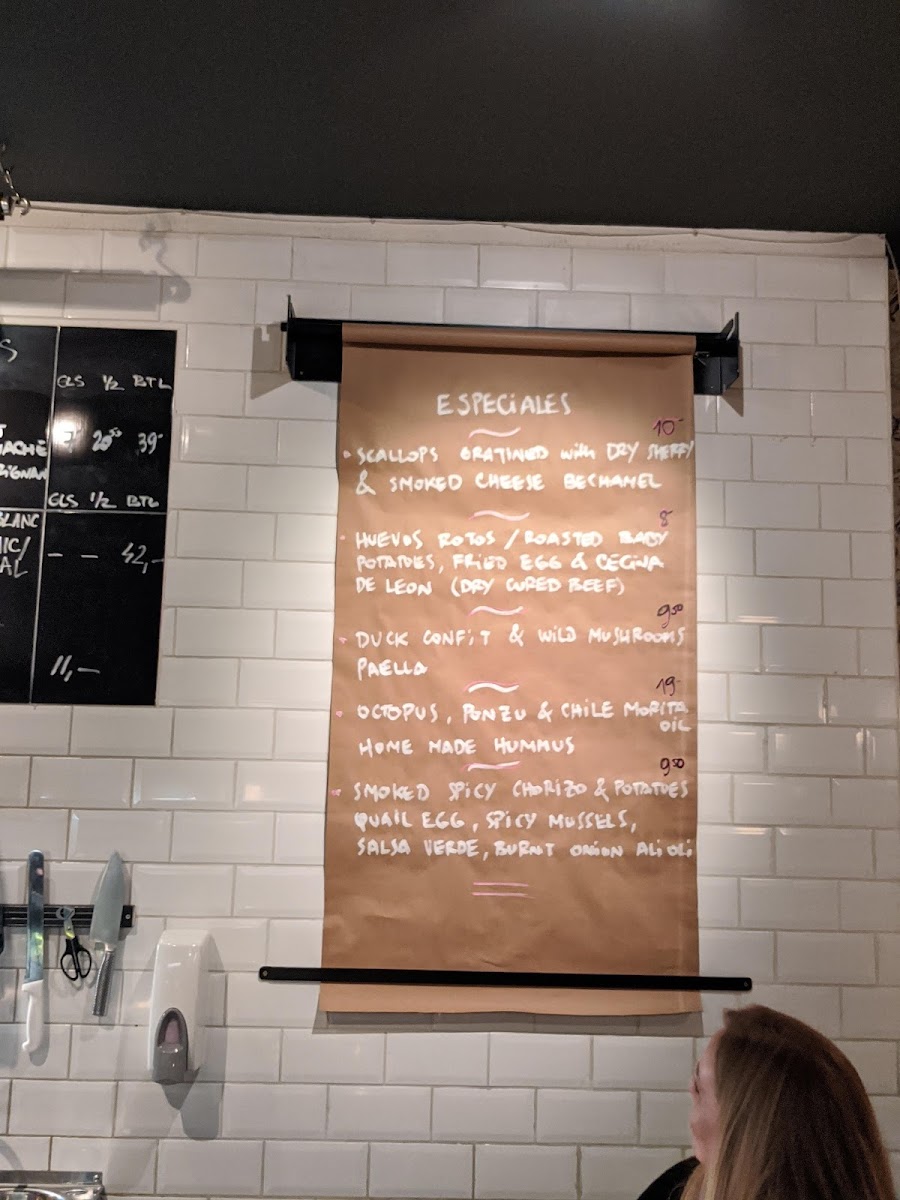 GLS 1/2 BTL
20⁵⁰ 39-
GLS 1/2 BTL
BLANC
- - 42,-
11,-
ESPECIALES
10-
SCALLOPS GRATINED with DRY SHERRY
& SMOKED CHEESE BECHAMEL
8-
HUEVOS ROTOS / ROASTED BABY
POTATOES, FRIED EGG & CECINA
DE LEON (DRY CURED BEEF)
9⁵⁰
DUCK CONFiT & WiLD MUSHROOMS
PAELLA
19-
OCTOPUS, PONZU & CHILE MORITA
OIL
HOME MADE HUMMUS
9⁵⁰
SMOKED SPiCY CHORIZO & POTATOES
QUAIL EGG, SPICY MUSSELS,
SALSA VERDE, BURNT ONION ALiOLi